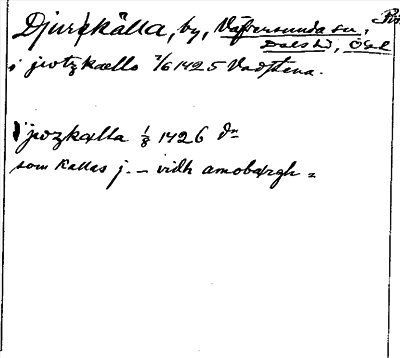 Djurkälla, by, Väversunda sn,
Dals hd, Ögl
i jwtzkællo 7/6 1425 Vadstena.
i jwzkælla 1/8 1426 dn
som kallas j. – vidh amobærgh =